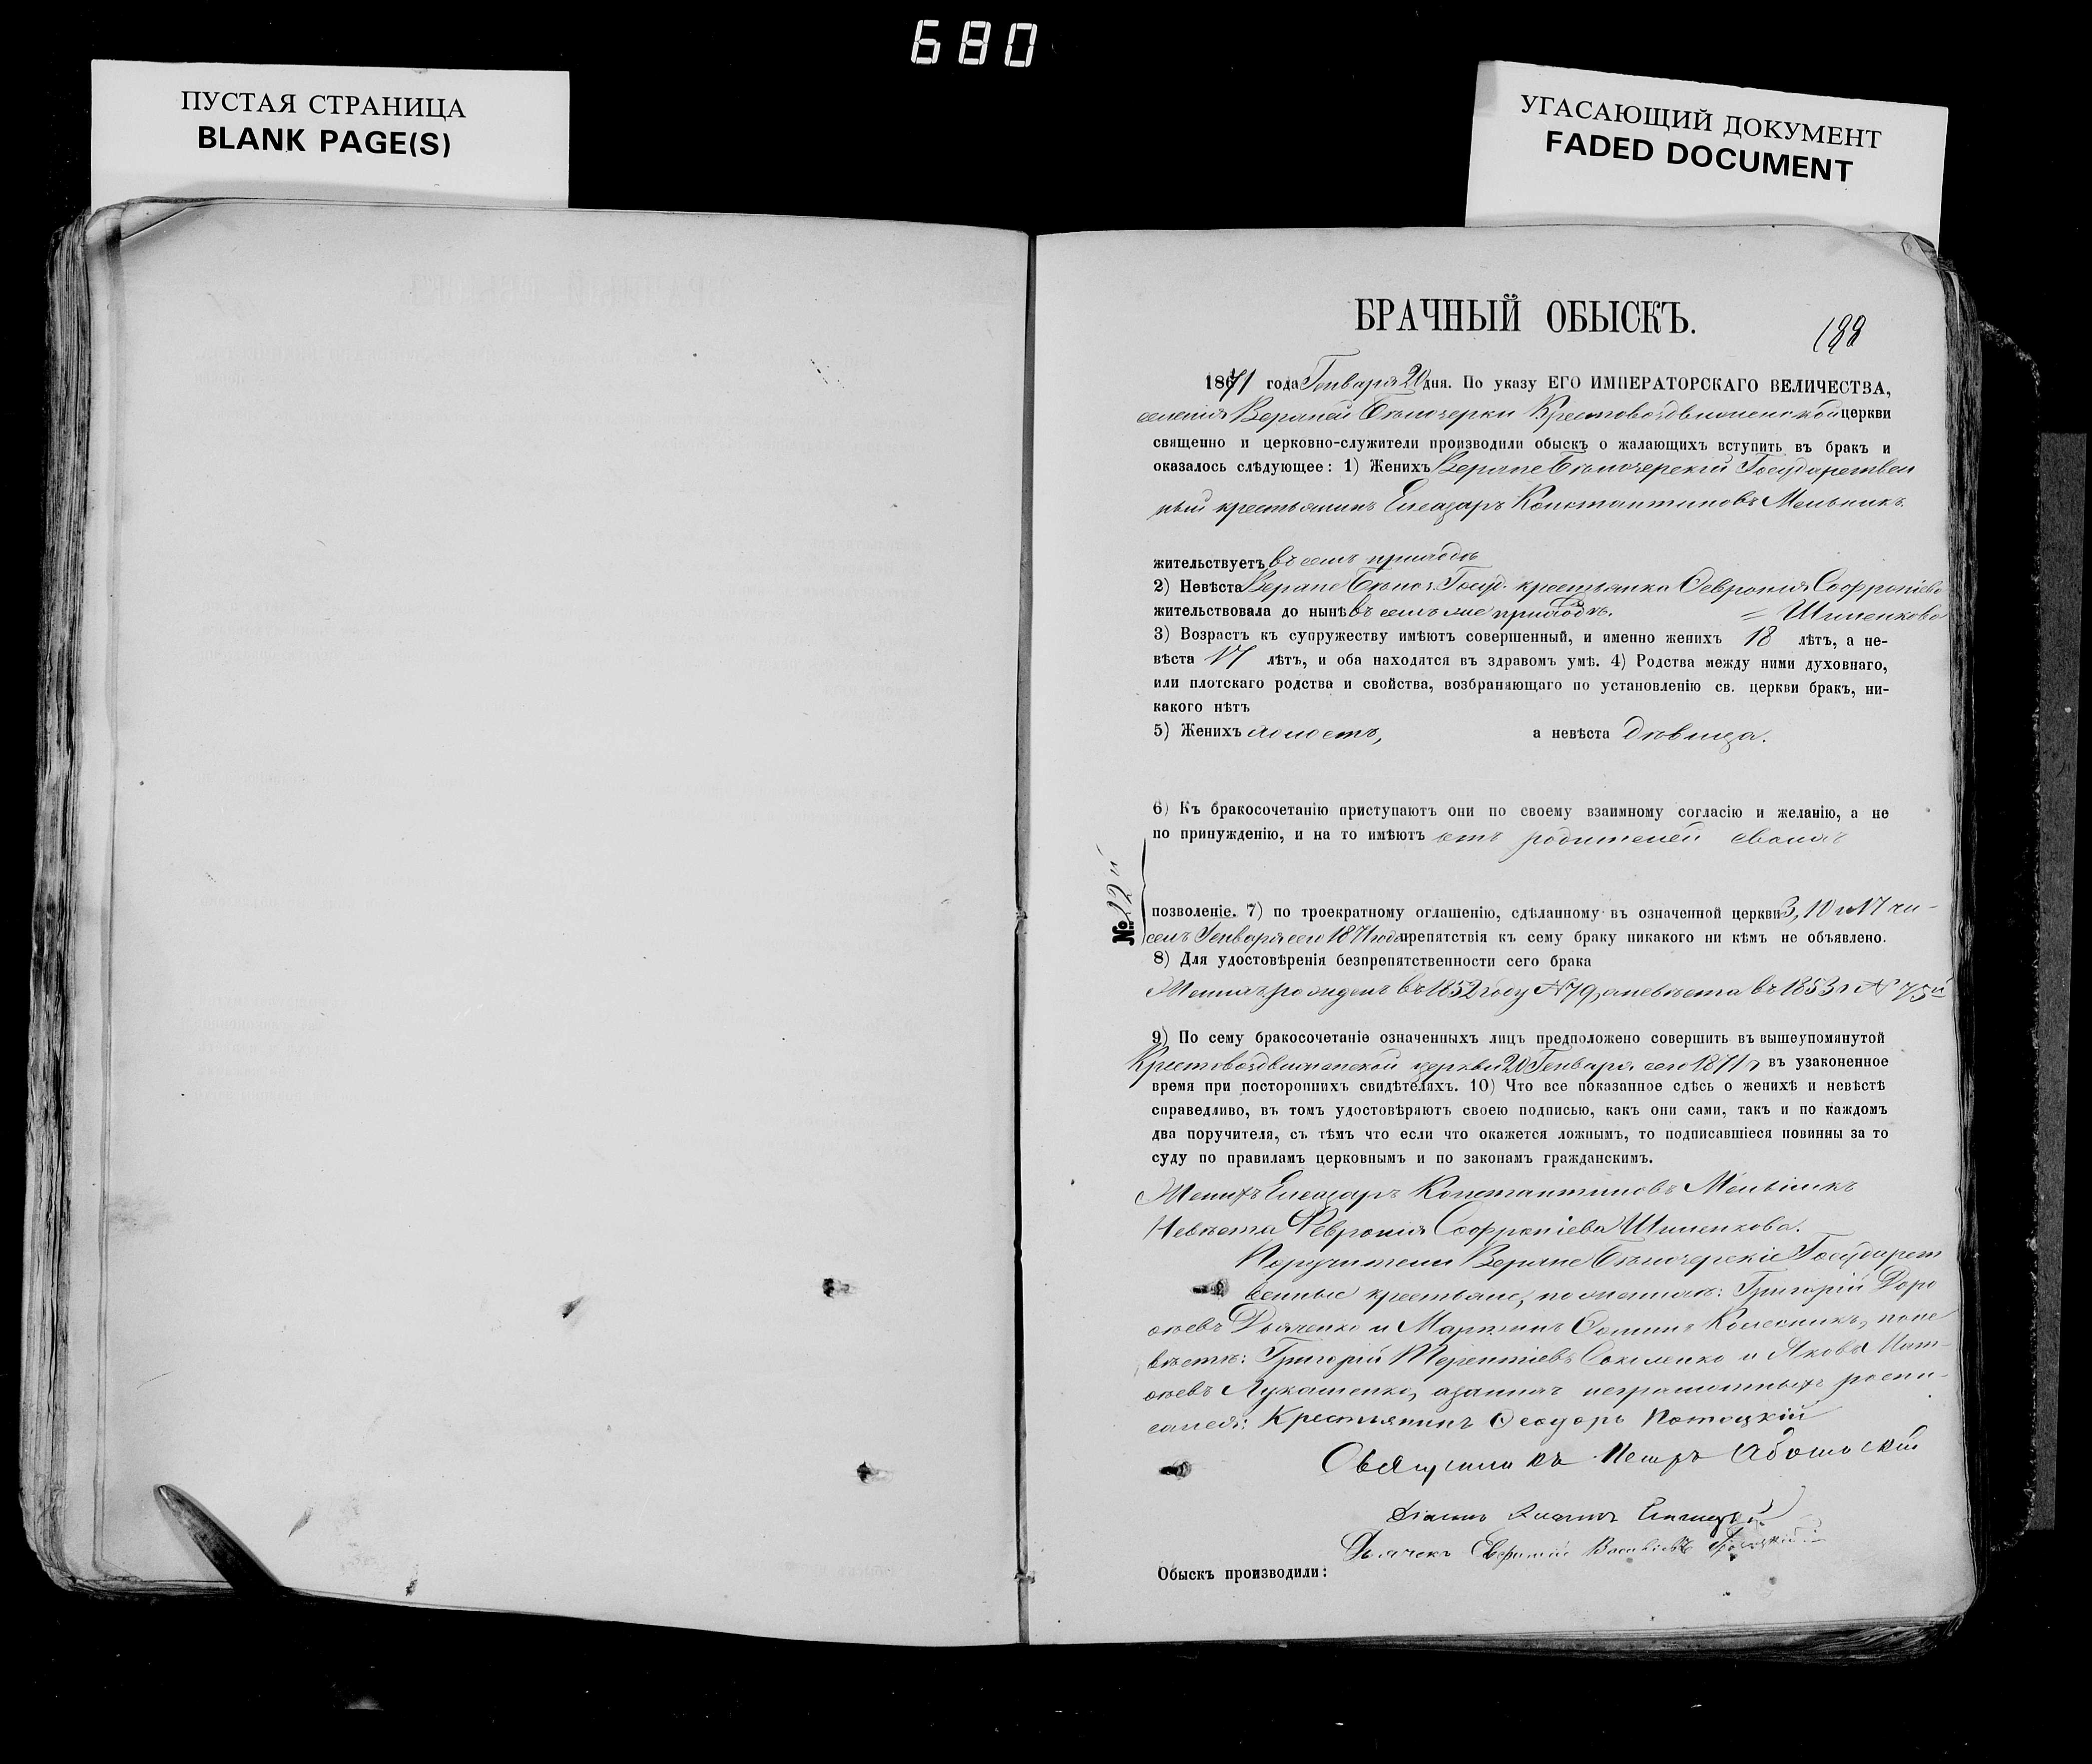 680
ПУСТАЯ СТРАНИЦА
BLANK PAGE(S)
УГАСАЮЩИЙ ДОКУМЕНТ
FADED DOCUMENT
БРАЧНЫЙ ОБЫСКЪ.
188
1871 года Генваря 20 дня. По указу ЕГО ИМПЕРАТОРСКАГО ВЕЛИЧЕСТВА,
селенія Верхней Бѣлозерки Крестовоздвиженской церкви
священно и церковно-служители производили обыскъ о жалающихъ вступить въ бракъ и
оказалось слѣдующее: 1) Женихъ Верхне Бѣлозерскій Государствен
ный крестьянинъ Елеазаръ Константиновъ Мельникъ.
жительствуетъ въ семъ приходѣ
2) Невѣста Верхне Бѣлоз. Госуд. крестьянка Феврония Софроніева
жительствовала до нынѣ въ семъ же приходѣ. = Шиленкова
3) Возрастъ къ супружеству имѣютъ совершенный, и именно женихъ 18 лѣтъ, а не-
вѣста 17 лѣтъ, и оба находятся въ здравомъ умѣ. 4) Родства между ними духовнаго,
или плотскаго родства и свойства, возбраняющаго по установленію св. церкви бракъ, ни-
какого нѣтъ
5) Женихъ холостъ, а невѣста дѣвица.
6) Къ бракосочетанію приступаютъ они по своему взаимному согласію и желанію, а не
по принужденію, и на то имѣютъ отъ родителей своихъ
№ 22й
позволеніе. 7) по троекратному оглашенію, сдѣланному въ означенной церкви 3, 10 и 17 чи-
селъ Генваря сего 1871 года препятствія къ сему браку никакого ни кѣмъ не объявлено.
8) Для удостовѣренія безпрепятственности сего брака
Женихъ рожденъ въ 1852 году № 79, а невѣста въ 1853 г № 75й
9) По сему бракосочетаніе означенныхъ лицъ предположено совершить въ вышеупомянутой
Крестовоздвиженской церкви 20 Генваря сего 1871 г въ узаконенное
время при постороннихъ свидѣтеляхъ. 10) Что все показанное сдѣсь о женихѣ и невѣстѣ
справедливо, въ томъ удостовѣряютъ своею подписью, какъ они сами, такъ и по каждомъ
два поручителя, съ тѣмъ что если что окажется ложнымъ, то подписавшіеся повинны за то
суду по правиламъ церковнымъ и по законамъ гражданскимъ.
Женихъ Елеазаръ Константиновъ Мельникъ
Невѣста Феврония Софроніева Шиленкова.
Поручители Верхне Бѣлозерскіе Государст
венные крестьяне, по женихѣ: Григорій Доро
ѳеевъ Дьяченко и Мартинъ Колесникъ, по не
вѣстѣ: Григорій Терентіевъ и Яковъ
Лукашенко, а за нихъ неграмотныхъ роспи-
сался: Крестьянинъ Ѳеодоръ Потоцкій
Священникъ Петръ
Діаконъ
Дьячекъ Евфимій
Обыскъ производили: